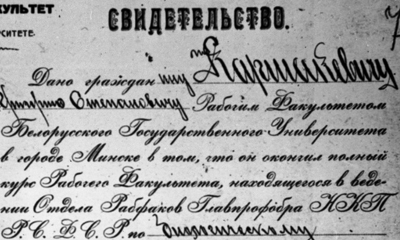 КУЛЬТЕТ
РСИТЕТЕ.
СВИДЕТЕЛЬСТВО.
Дано граждан ину
Рабочим Факультетом
Белорусского Государственного Университета
в городе Минске в том, что он окончил полный
курс Рабочего Факультета, находящегося в веде-
нии Отдела Рабфаков Главпрофобра НКП
Р. С. Ф. С. Р. по